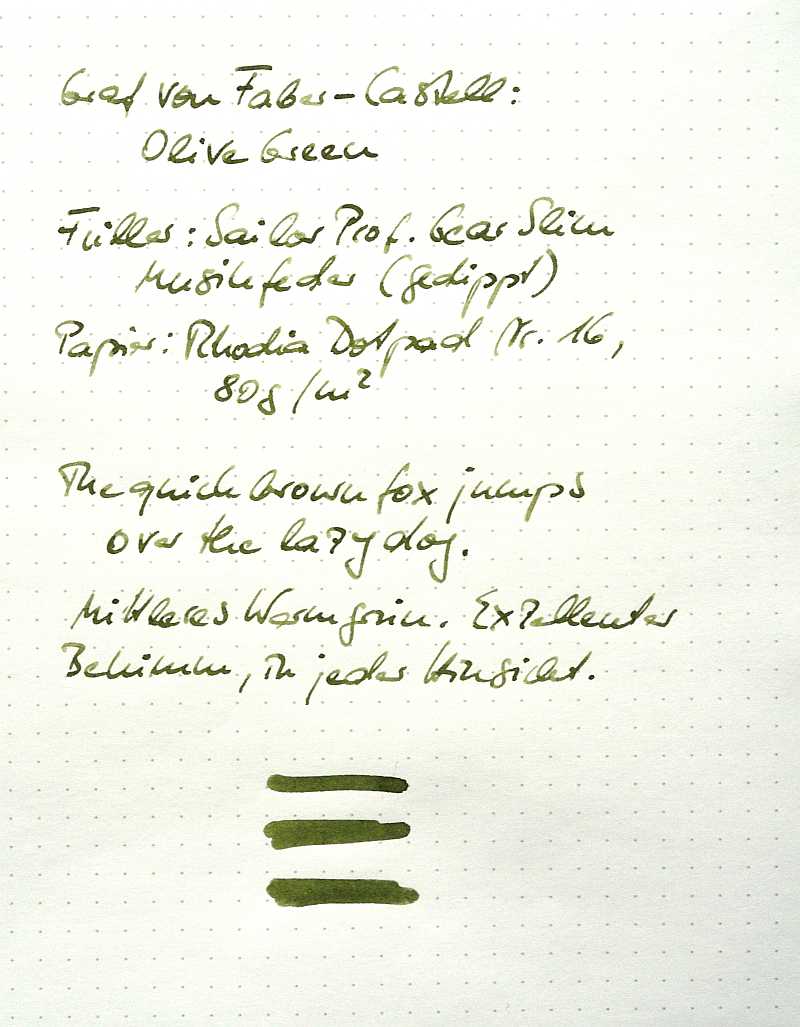 Graf von Faber-Castell:
Olive Green
Füller: Sailor Prof. Gear Slim
Musikfeder (gedippt)
Papier: Rhodia Dotpad Nr. 16,
80g/m²
The quick brown fox jumps
over the lazy dog.
Mittleres Warmgrün. Exzellenter
Benimm, in jeder Hinsicht.